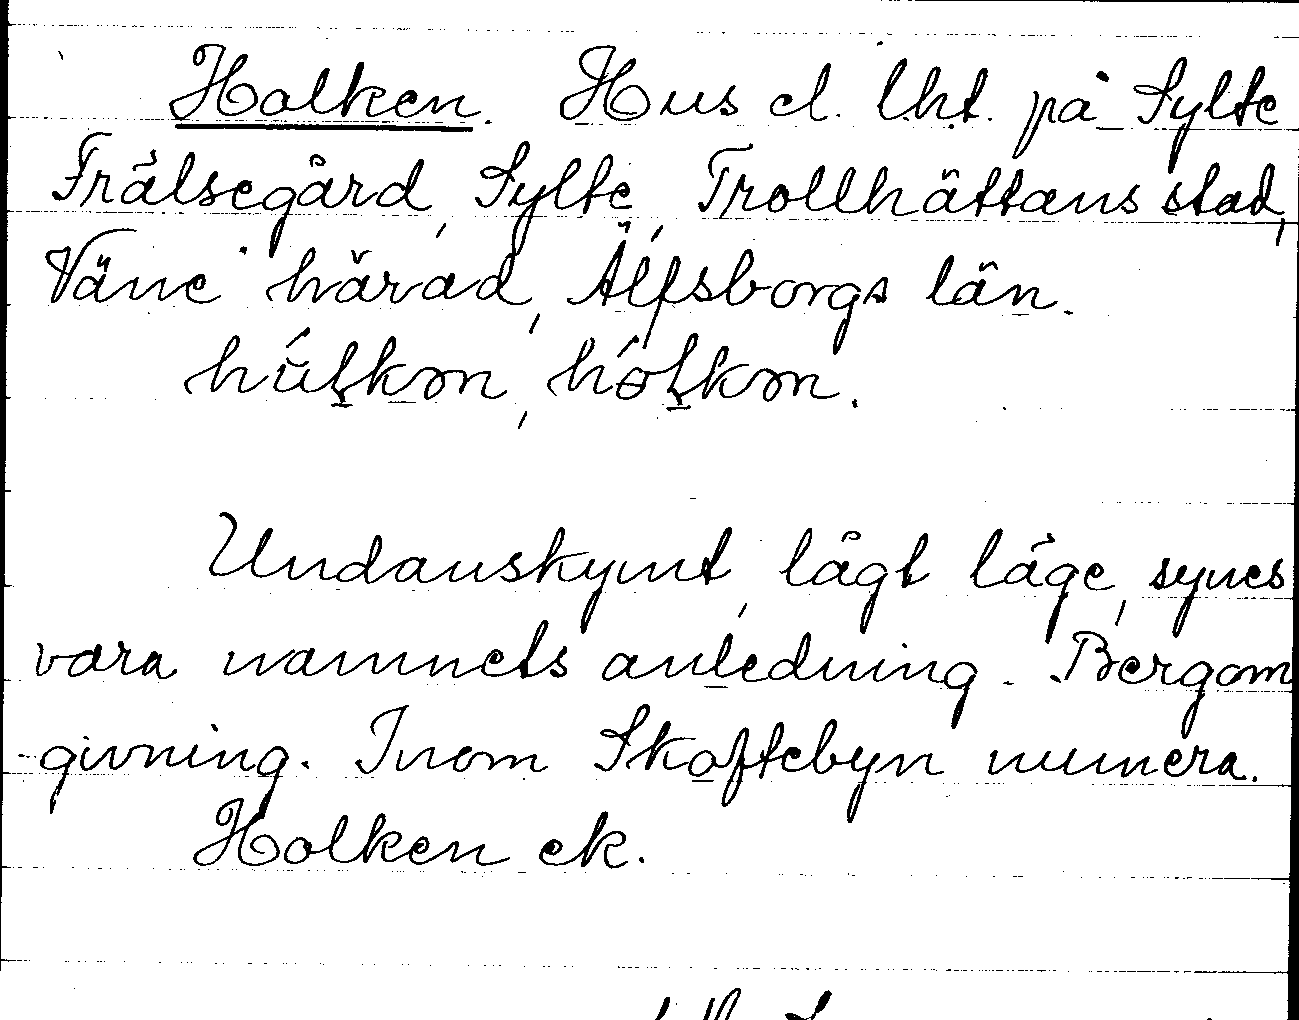 Holken. Hus el. lht. på Sylte
Frälsegård, Sylte, Trollhättans stad,
Väne härad, Älfsborgs län.
Undanskymt, lågt läge, synes
vara namnets anledning. Bergom
givning. Inom Skoftebyn numera.
Holken ek.